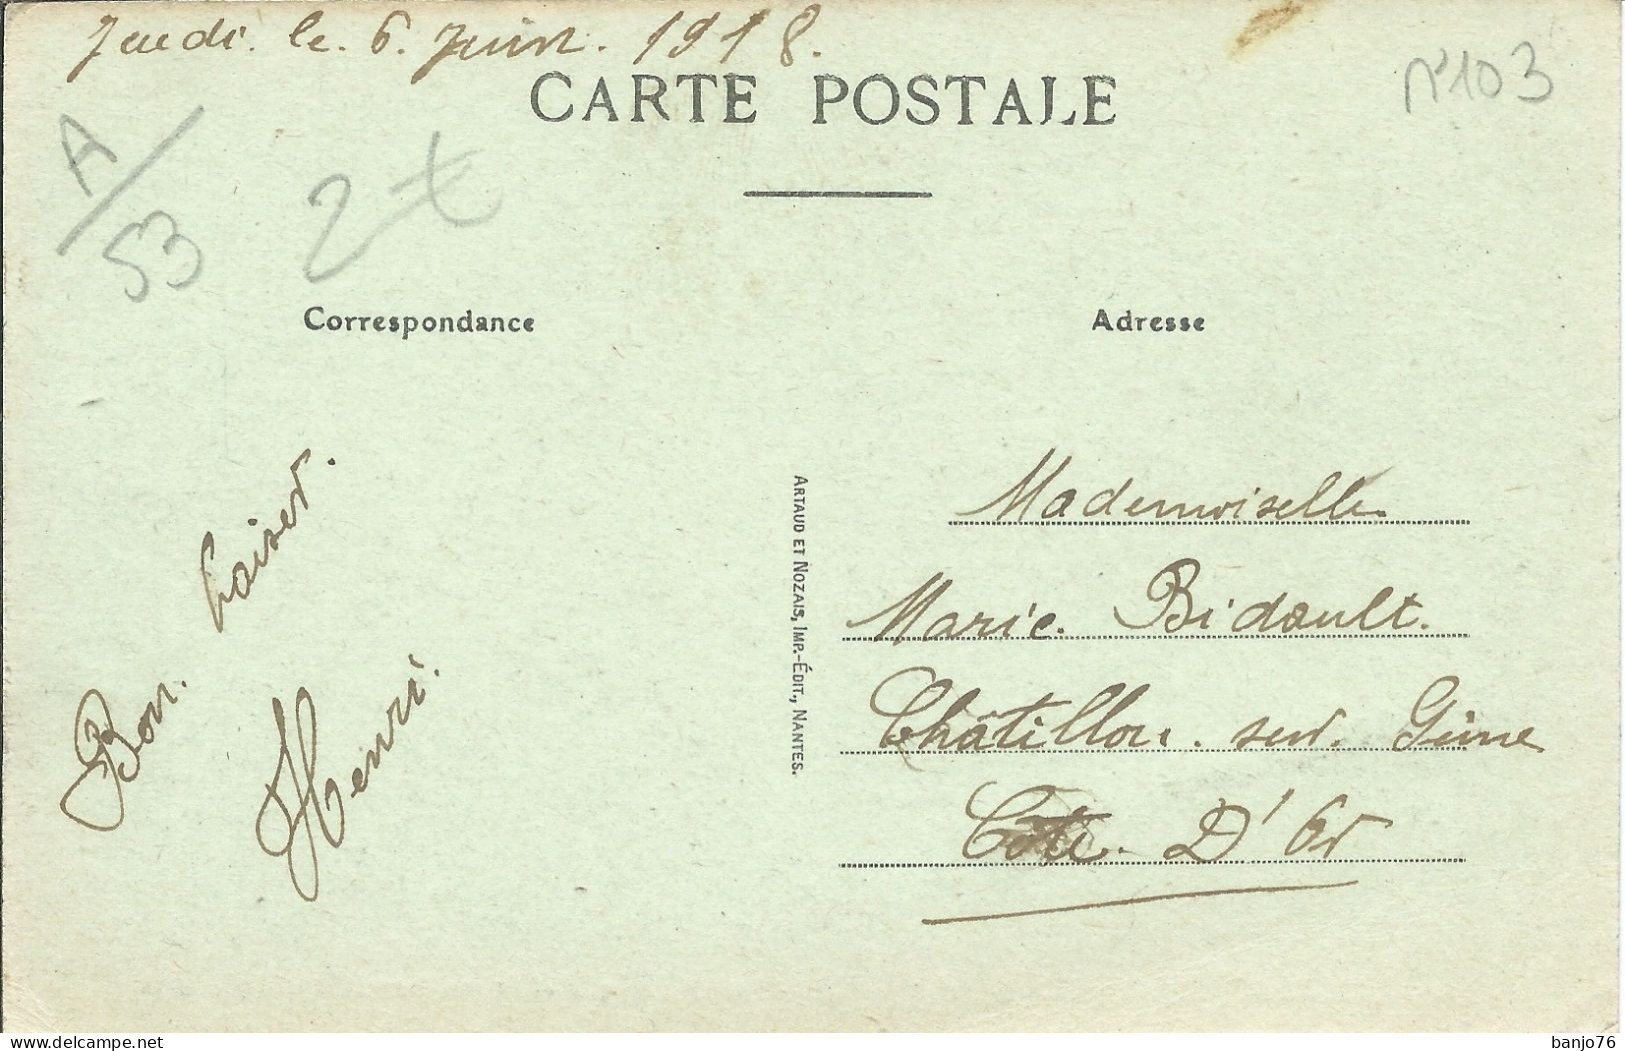 Jeudi. le. 6. Juin. 1918.
CARTE POSTALE
N°103
A/53
2
Correspondance
Adresse
Bon. baiser.
Henri.
ARTAUD ET NOZAIS, IMP.-ÉDIT., NANTES.
Mademoiselle
Marie. Bidault.
Châtillon. sur. Seine
Côte. D'Or
banjo76